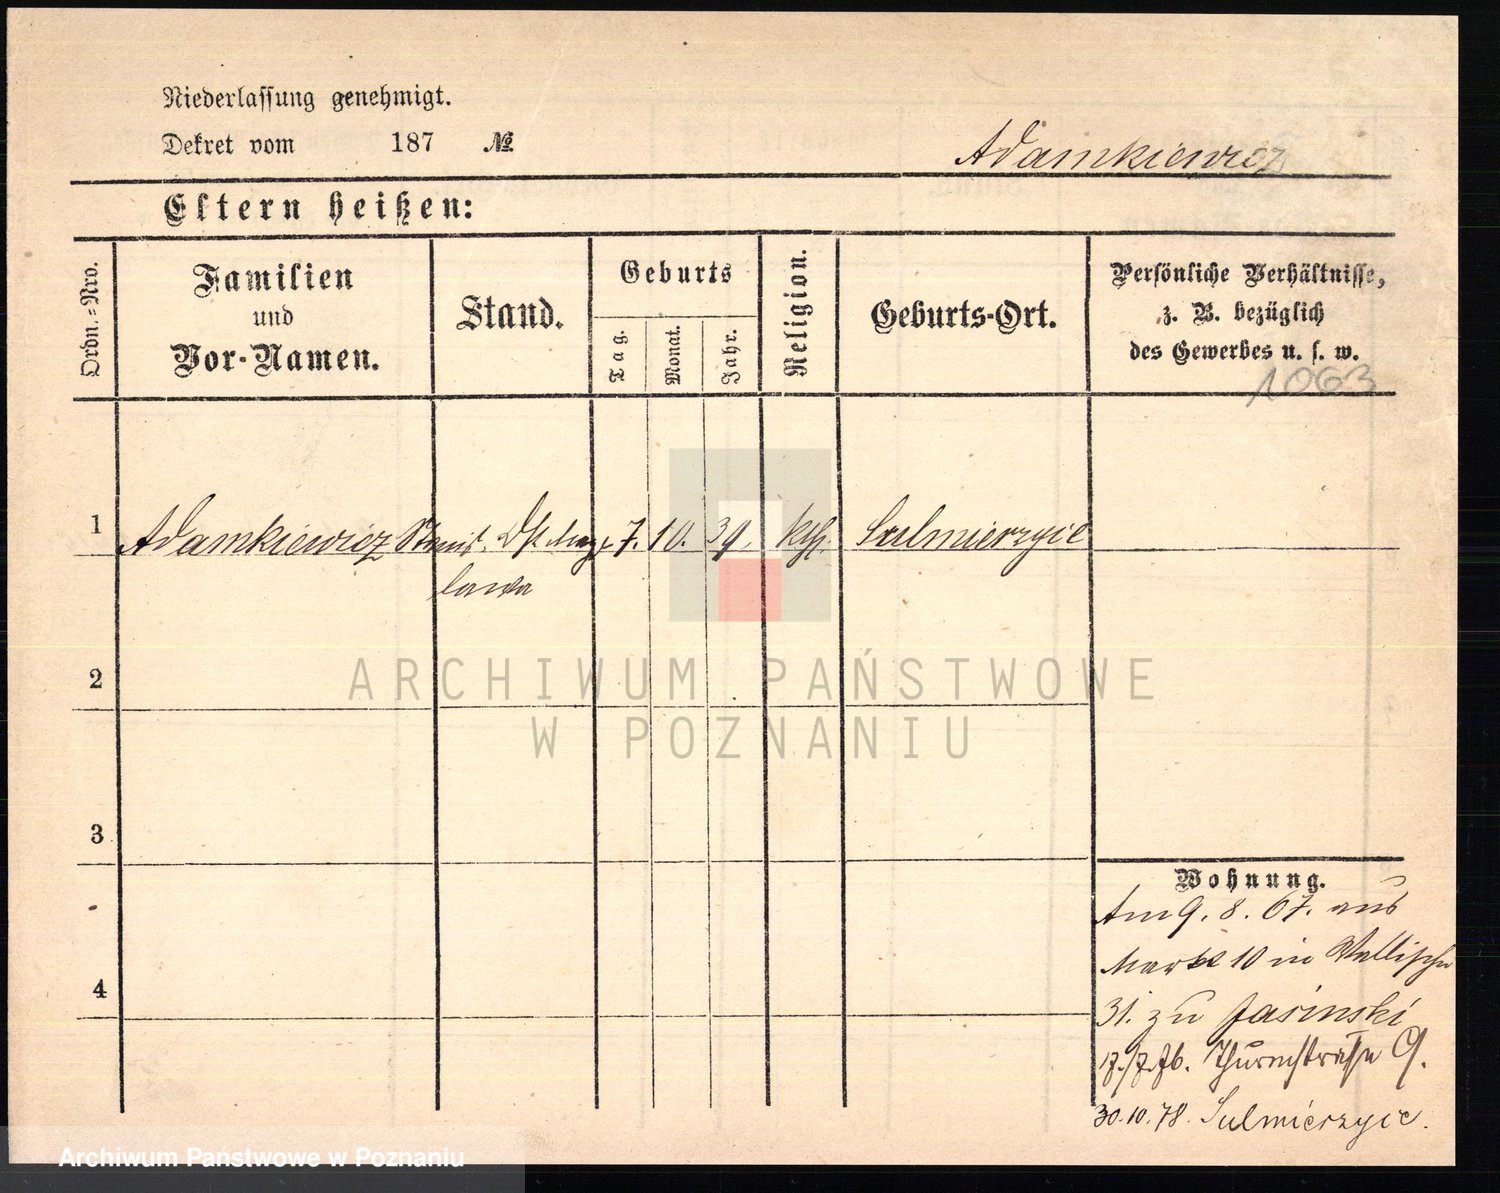 Niederlassung genehmigt.
Dekret vom 187 №
Adamkiewicz
Eltern heißen:
Ordn.=Nro.
Familien
und
Vor-Namen.
Stand.
Geburts
Tag.
Monat.
Jahr.
Religion.
Geburts-Ort.
Persönliche Verhältnisse,
z. B. bezüglich
des Gewerbes u. s. w.
1063
1 Adamkiewicz Stanis- 7. 10. 39. kth. Sulmierzyce
lawa
2
3
4
Wohnung.
Am 9. 8. 67. aus
Markt 10 in Wallischei
31. zu Jasinski
17./7.76. Thurmstrasse 9.
30.10.78. Sulmierzyce.
ARCHIWUM PAŃSTWOWE
W POZNANIU
Archiwum Państwowe w Poznaniu